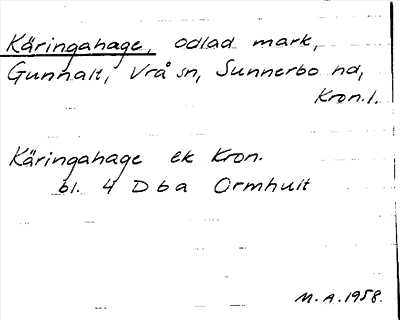 Käringahage, odlad mark,
Gunhalt, Vrå sn, Sunnerbo hd,
Kron.l.
Käringahage ek Kron.
bl. 4 D b a Ormhult
M.A. 1958.